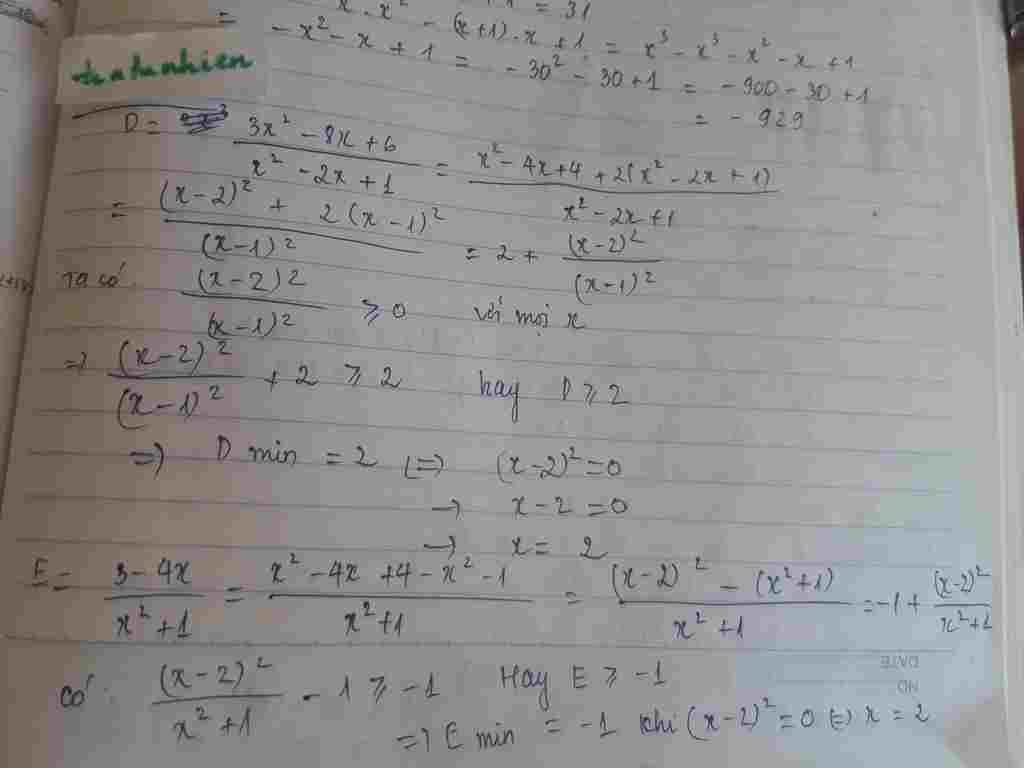 x - x² - (x+1).x + 1 = x³ - x³ - x² - x + 1
= 31
= -x² - x + 1 = -30² - 30 + 1 = -900 - 30 + 1
= -929
tuantunhien
D = (3x² - 8x + 6)/(x² - 2x + 1) = (x² - 4x + 4 + 2(x² - 2x + 1))/(x² - 2x + 1)
= ((x-2)² + 2(x-1)²)/(x-1)² = 2 + (x-2)²/(x-1)²
Ta có: (x-2)²/(x-1)² ≥ 0 với mọi x
=> (x-2)²/(x-1)² + 2 ≥ 2 hay D ≥ 2
=> D min = 2 <=> (x-2)² = 0
→ x - 2 = 0
→ x = 2
E = (3 - 4x)/(x² + 1) = (x² - 4x + 4 - x² - 1)/(x² + 1) = ((x-2)² - (x² + 1))/(x² + 1) = -1 + (x-2)²/(x² + 1)
Có: (x-2)²/(x² + 1) - 1 ≥ -1 Hay E ≥ -1
=> E min = -1 khi (x-2)² = 0 <=> x = 2
DATE
NO